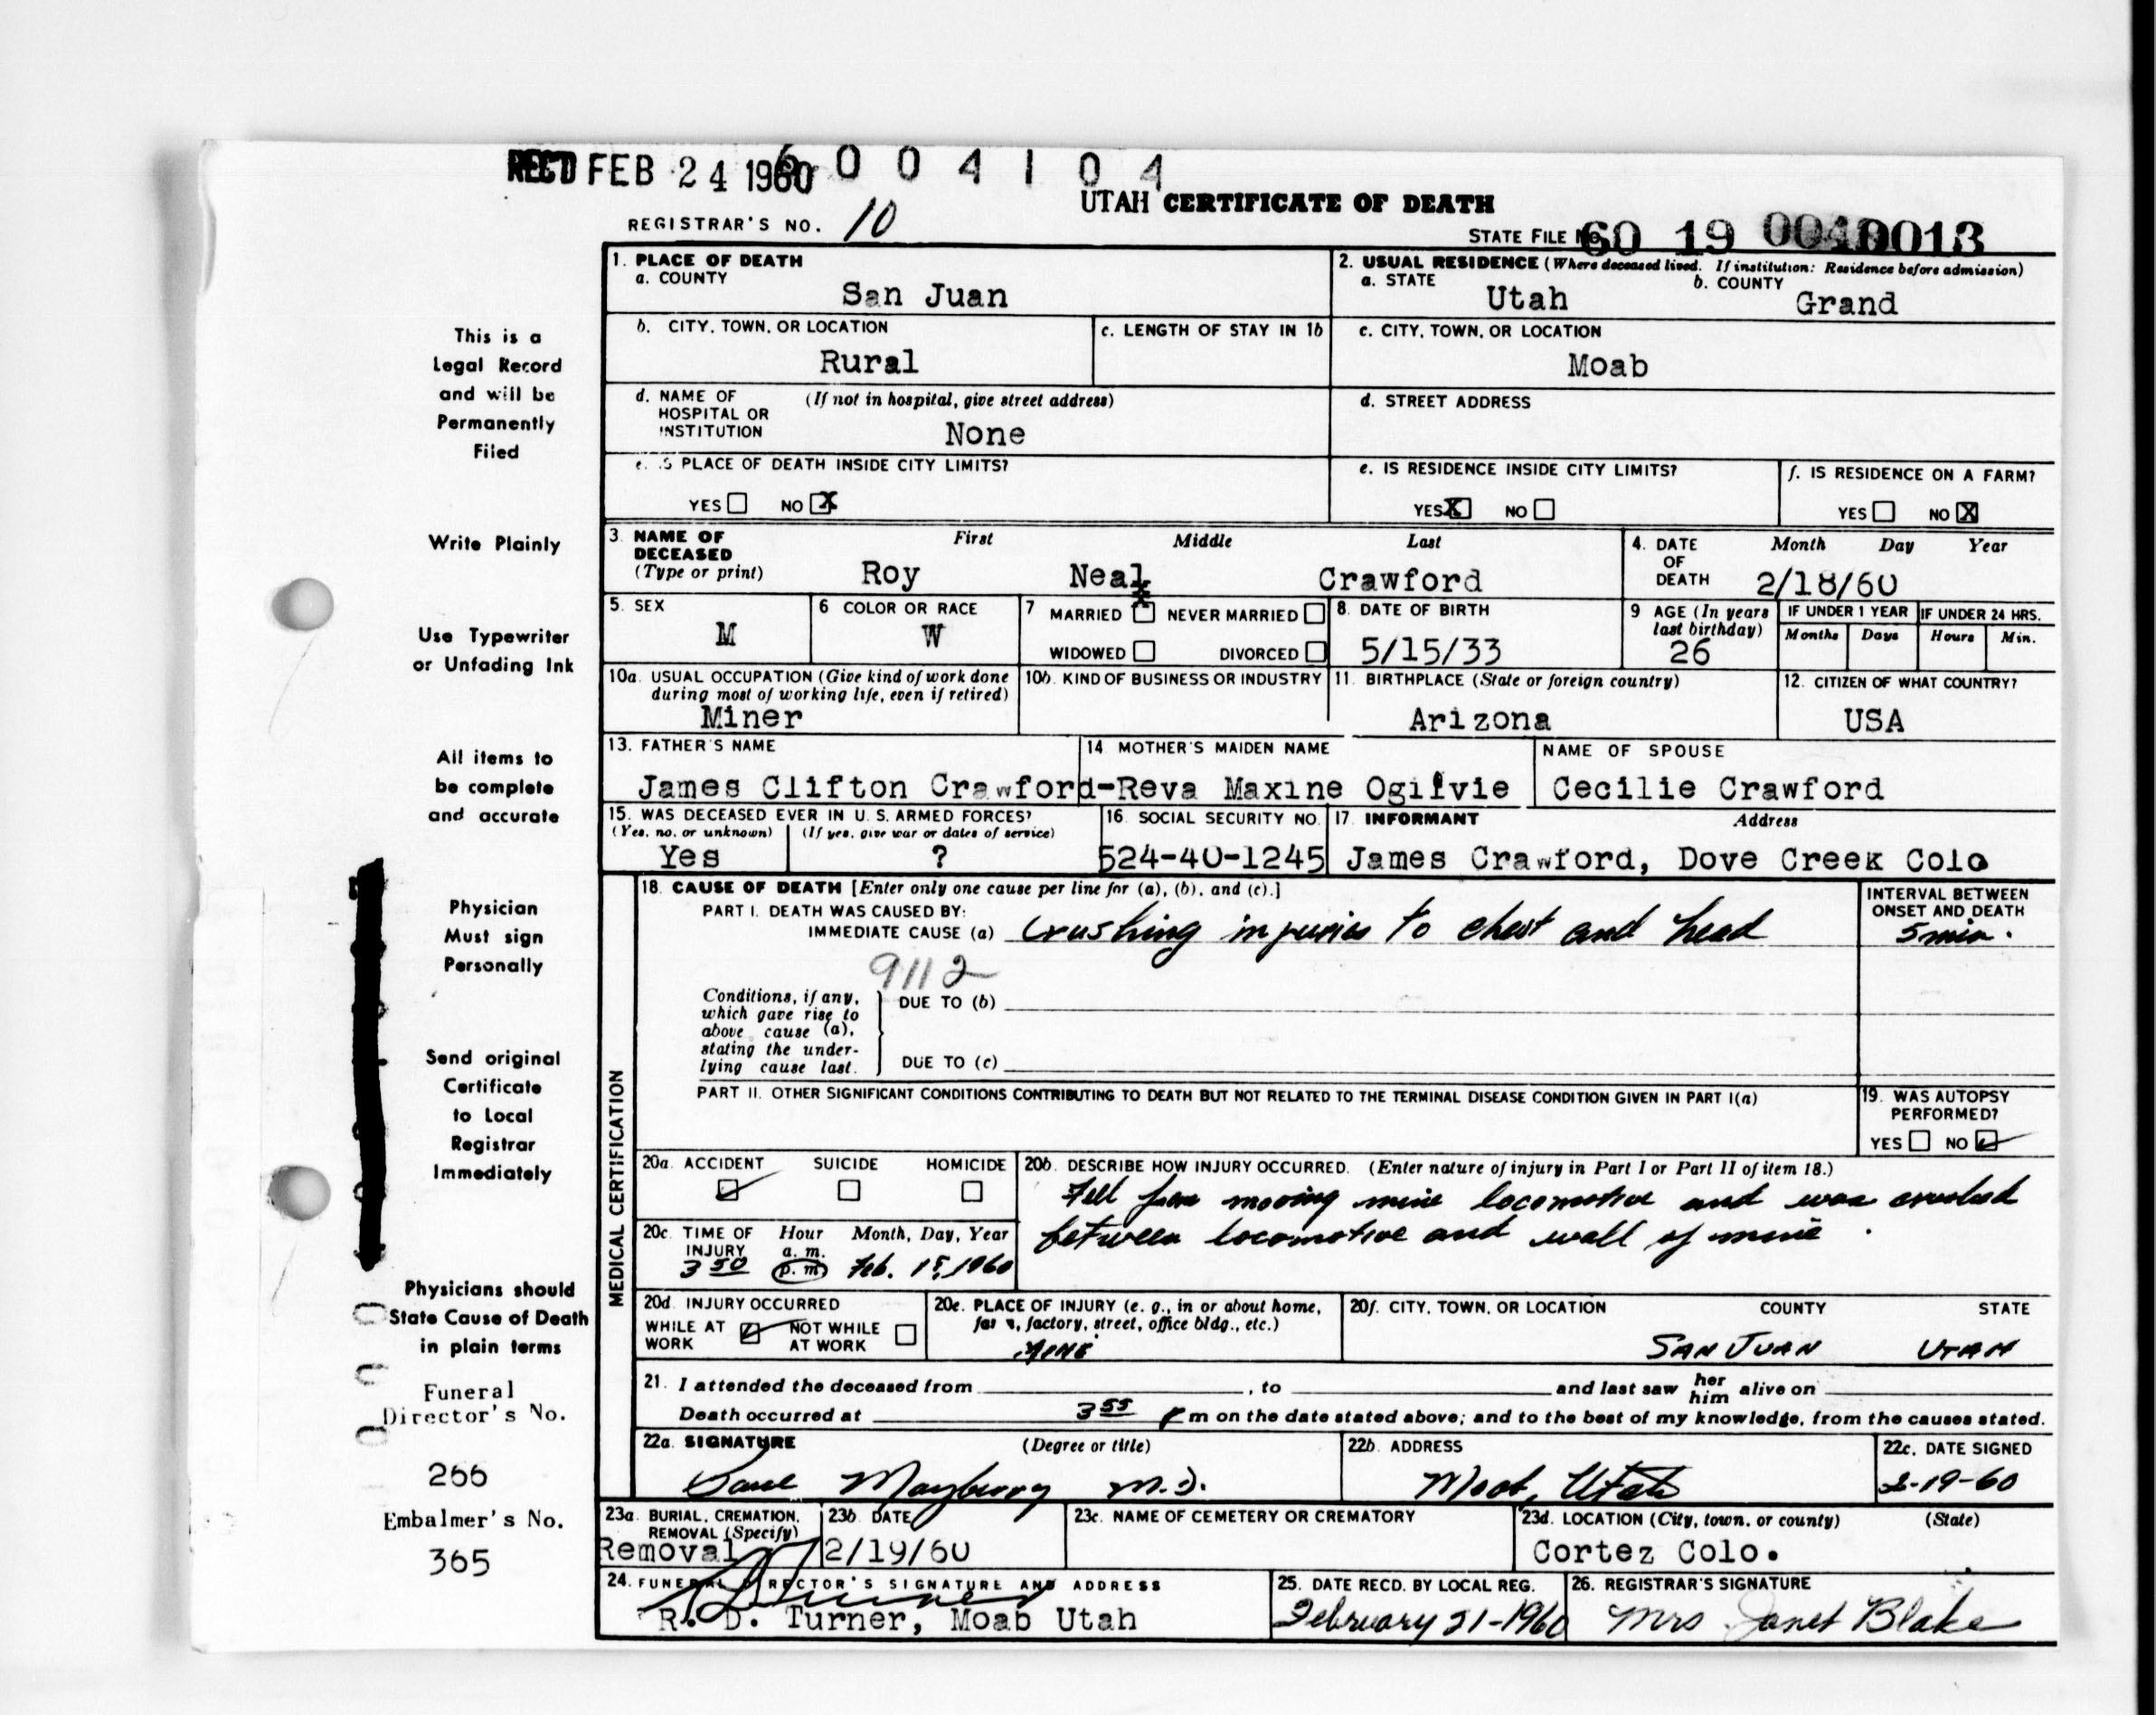 REC'D FEB 24 1960 6004104
UTAH CERTIFICATE OF DEATH
REGISTRAR'S NO. 10
STATE FILE 60 19 0013
1. PLACE OF DEATH
a. COUNTY
San Juan
2. USUAL RESIDENCE (Where deceased lived. If institution: Residence before admission)
a. STATE b. COUNTY
Utah Grand
b. CITY, TOWN, OR LOCATION
Rural
c. LENGTH OF STAY IN 1b
c. CITY, TOWN, OR LOCATION
Moab
d. NAME OF HOSPITAL OR INSTITUTION (If not in hospital, give street address)
None
d. STREET ADDRESS
e. IS PLACE OF DEATH INSIDE CITY LIMITS?
YES NO X
e. IS RESIDENCE INSIDE CITY LIMITS?
YES X NO
f. IS RESIDENCE ON A FARM?
YES NO X
3. NAME OF DECEASED (Type or print) First Middle Last
Roy Neal Crawford
4. DATE OF DEATH Month Day Year
2/18/60
5. SEX
M
6 COLOR OR RACE
W
7 MARRIED X NEVER MARRIED
WIDOWED DIVORCED
8. DATE OF BIRTH
5/15/33
9 AGE (In years last birthday)
26
IF UNDER 1 YEAR IF UNDER 24 HRS.
Months Days Hours Min.
10a. USUAL OCCUPATION (Give kind of work done during most of working life, even if retired)
Miner
10b. KIND OF BUSINESS OR INDUSTRY
11. BIRTHPLACE (State or foreign country)
Arizona
12. CITIZEN OF WHAT COUNTRY?
USA
13. FATHER'S NAME
James Clifton Crawford-
14. MOTHER'S MAIDEN NAME
Reva Maxine Ogilvie
NAME OF SPOUSE
Cecilie Crawford
15. WAS DECEASED EVER IN U. S. ARMED FORCES?
(Yes, no, or unknown) (If yes, give war or dates of service)
Yes ?
16. SOCIAL SECURITY NO.
524-40-1245
17. INFORMANT Address
James Crawford, Dove Creek Colo
18. CAUSE OF DEATH [Enter only one cause per line for (a), (b), and (c).]
PART I. DEATH WAS CAUSED BY:
IMMEDIATE CAUSE (a) Crushing injuries to chest and head
INTERVAL BETWEEN ONSET AND DEATH
5 min.
9112
Conditions, if any, which gave rise to above cause (a), stating the underlying cause last.
DUE TO (b)
DUE TO (c)
PART II. OTHER SIGNIFICANT CONDITIONS CONTRIBUTING TO DEATH BUT NOT RELATED TO THE TERMINAL DISEASE CONDITION GIVEN IN PART I(a)
19. WAS AUTOPSY PERFORMED?
YES NO
MEDICAL CERTIFICATION
20a. ACCIDENT SUICIDE HOMICIDE
20b. DESCRIBE HOW INJURY OCCURRED. (Enter nature of injury in Part I or Part II of item 18.)
Fell from moving mine locomotive and was crushed
between locomotive and wall of mine.
20c. TIME OF INJURY Hour a. m. p. m. Month, Day, Year
3 50 Feb. 18, 1960
20d. INJURY OCCURRED
WHILE AT WORK NOT WHILE AT WORK
20e. PLACE OF INJURY (e. g., in or about home, farm, factory, street, office bldg., etc.)
MINE
20f. CITY, TOWN, OR LOCATION COUNTY STATE
SAN JUAN UTAH
21. I attended the deceased from , to and last saw her him alive on
Death occurred at 3 55 P m on the date stated above; and to the best of my knowledge, from the causes stated.
22a. SIGNATURE (Degree or title)
Paul Mayberry M.D.
22b. ADDRESS
Moab, Utah
22c. DATE SIGNED
2-19-60
23a. BURIAL, CREMATION, REMOVAL (Specify)
Removal
23b. DATE
2/19/60
23c. NAME OF CEMETERY OR CREMATORY
23d. LOCATION (City, town, or county) (State)
Cortez Colo.
24. FUNERAL DIRECTOR'S SIGNATURE AND ADDRESS
R. D. Turner, Moab Utah
25. DATE RECD. BY LOCAL REG.
February 21-1960
26. REGISTRAR'S SIGNATURE
Mrs Janet Blake
This is a
Legal Record
and will be
Permanently
Filed
Write Plainly
Use Typewriter
or Unfading Ink
All items to
be complete
and accurate
Physician
Must sign
Personally
Send original
Certificate
to Local
Registrar
Immediately
Physicians should
State Cause of Death
in plain terms
Funeral
Director's No.
266
Embalmer's No.
365